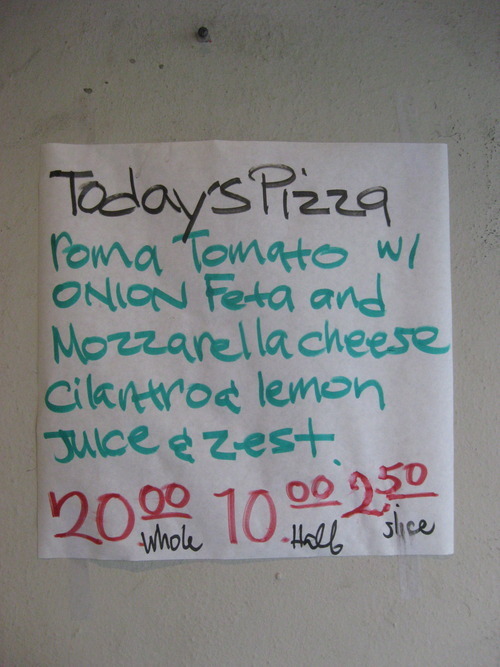 Today's Pizza
roma Tomato w/
ONION Feta and
Mozzarella cheese
cilantro & lemon
Juice & zest.
20.00 10.00 2.50
whole Half slice